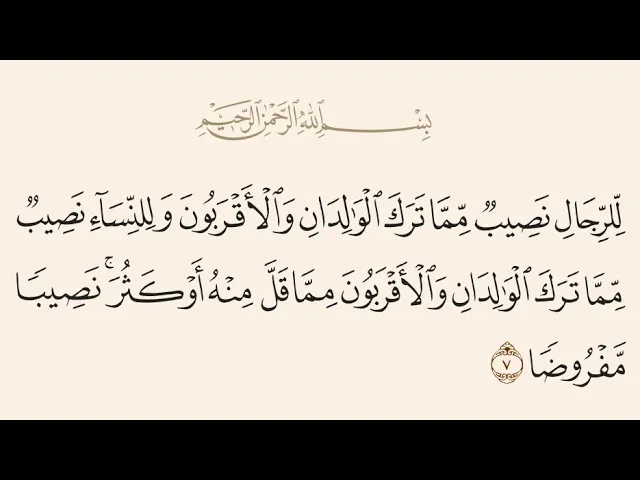 بِسْمِ ٱللَّهِ ٱلرَّحْمَٰنِ ٱلرَّحِيمِ
لِّلرِّجَالِ نَصِيبٌ مِّمَّا تَرَكَ ٱلْوَٰلِدَانِ وَٱلْأَقْرَبُونَ وَلِلنِّسَآءِ نَصِيبٌ
مِّمَّا تَرَكَ ٱلْوَٰلِدَانِ وَٱلْأَقْرَبُونَ مِمَّا قَلَّ مِنْهُ أَوْ كَثُرَ ۚ نَصِيبًا
مَّفْرُوضًا ٧